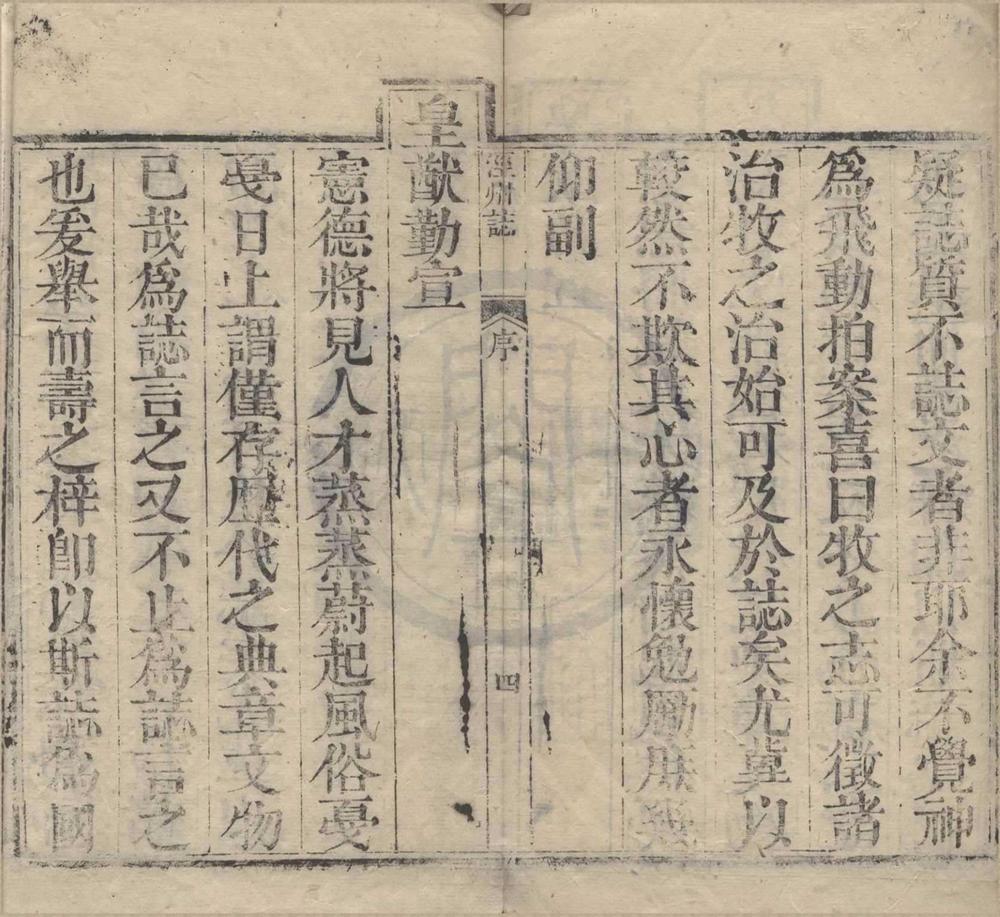 疑誌質不誌文者非耶余不覺神
爲飛動拍案喜曰牧之志可徵諸
治牧之治始可及於誌矣尤冀以
較然不欺其心者永懷勉勵庶幾
仰副
涇州誌 序 四
皇猷勤宣
憲德將見人才蒸蒸蔚起風俗戞
戞日上謂僅存歷代之典章文物
已哉爲誌言之又不止爲誌言之
也爰舉而壽之梓卽以斯誌爲國